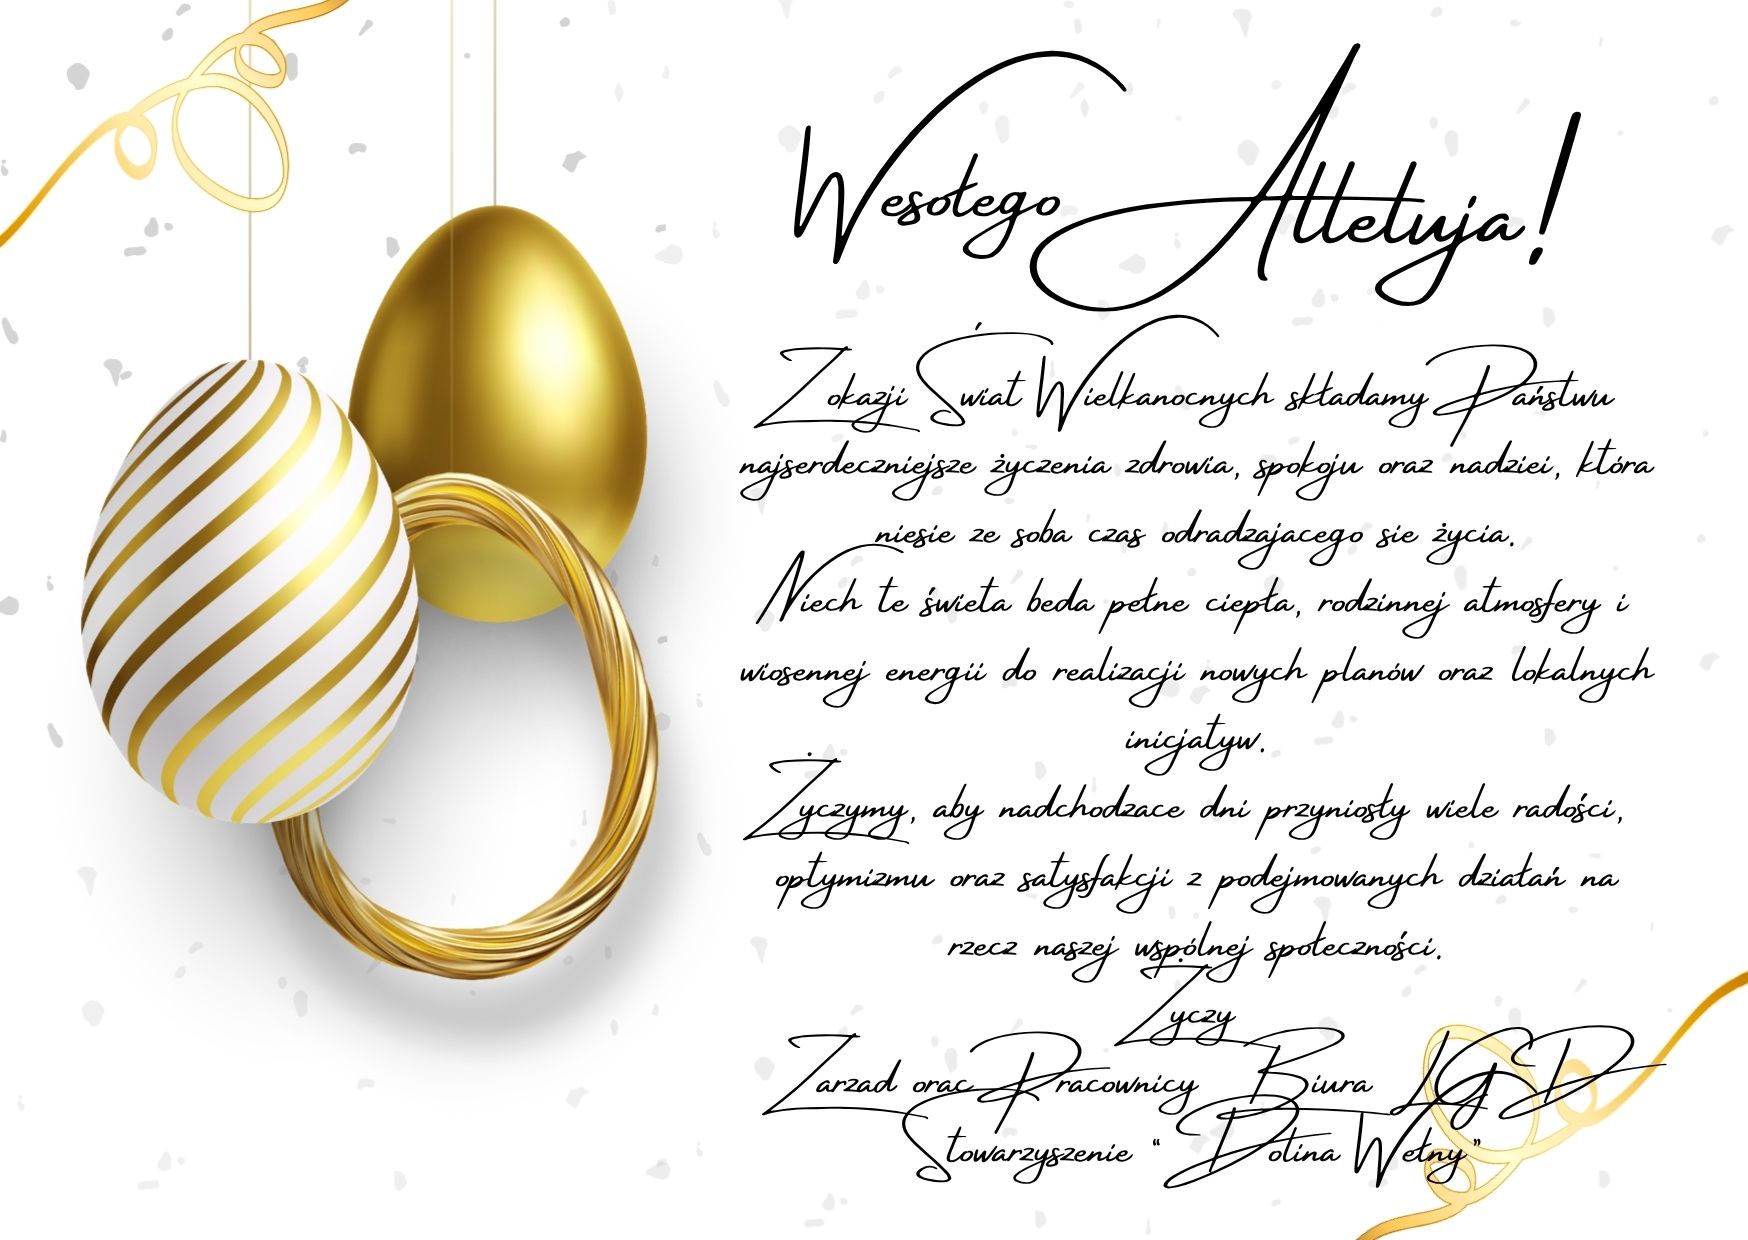 Wesołego Alleluja!
Z okazji Świat Wielkanocnych składamy Państwu
najserdeczniejsze życzenia zdrowia, spokoju oraz nadziei, która
niesie ze soba czas odradzajacego sie życia.
Niech te świeta beda pełne ciepła, rodzinnej atmosfery i
wiosennej energii do realizacji nowych planów oraz lokalnych
inicjatyw.
Życzymy, aby nadchodzace dni przyniosły wiele radości,
optymizmu oraz satysfakcji z podejmowanych działań na
rzecz naszej wspólnej społeczności.
Życzy
Zarzad orac Pracownicy Biura LGD
Stowarzyszenie “ Dolina Wełny”